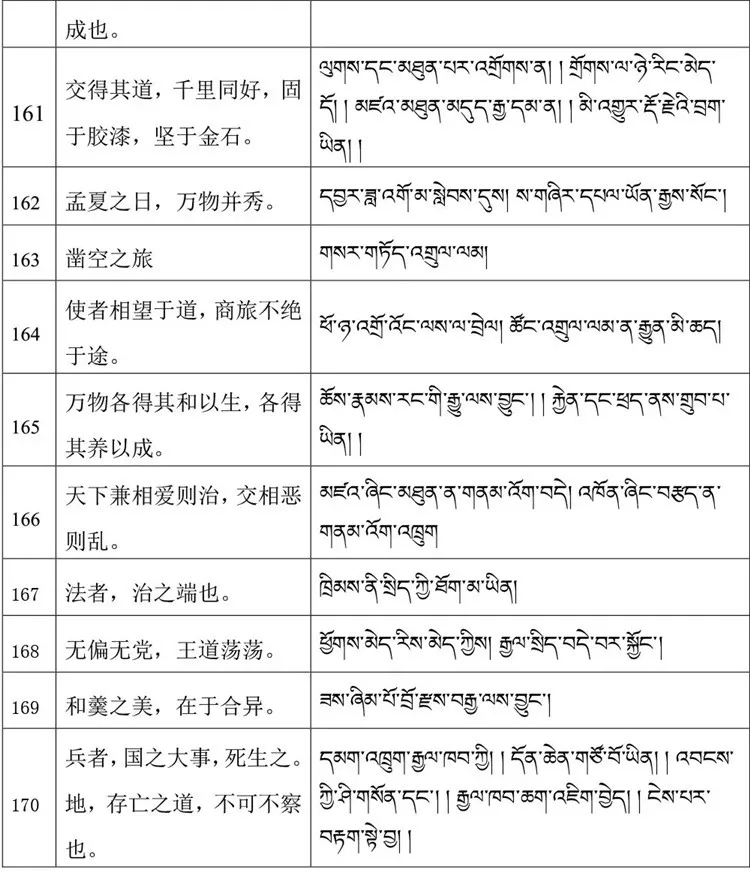 成也。
161
交得其道，千里同好，固
于胶漆，坚于金石。
ལུགས་དང་མཐུན་པར་འགྲོགས་ན། །གྲོགས་ལ་ཉེ་རིང་མེད་
དོ། །མཛའ་མཐུན་མདུད་རྒྱ་དམ་ན། །མི་འགྱུར་རྡོ་རྗེའི་བྲག་
ཡིན། །
162
孟夏之日，万物并秀。
དབྱར་ཟླ་འགོ་མ་སླེབས་དུས། ས་གཞིར་དཔལ་ཡོན་རྒྱས་སོང་།
163
凿空之旅
གསར་གཏོད་འགྲུལ་ལམ།
164
使者相望于道，商旅不绝
于途。
ཕོ་ཉ་འགྲོ་འོང་ལས་ལ་བྲེལ། ཚོང་འགྲུལ་ལམ་ན་རྒྱུན་མི་ཆད།
165
万物各得其和以生，各得
其养以成。
ཆོས་རྣམས་རང་གི་རྒྱུ་ལས་བྱུང་། །རྐྱེན་དང་ཕྲད་ནས་གྲུབ་པ་
ཡིན། །
166
天下兼相爱则治，交相恶
则乱。
མཛའ་ཞིང་མཐུན་ན་གནམ་འོག་བདེ། འཁོན་ཞིང་བརྩད་ན་
གནམ་འོག་འཁྲུག
167
法者，治之端也。
ཁྲིམས་ནི་སྲིད་ཀྱི་ཐོག་མ་ཡིན།
168
无偏无党，王道荡荡。
ཕྱོགས་མེད་རིས་མེད་ཀྱིས། རྒྱལ་སྲིད་བདེ་བར་སྐྱོང་།
169
和羹之美，在于合异。
ཟས་ཞིམ་པོ་བྲོ་རྫས་བརྒྱ་ལས་བྱུང་།
170
兵者，国之大事，死生之。
地，存亡之道，不可不察
也。
དམག་འཁྲུག་རྒྱལ་ཁབ་ཀྱི། །དོན་ཆེན་གཙོ་བོ་ཡིན། །འབངས་
ཀྱི་ཤི་གསོན་དང་། །རྒྱལ་ཁབ་ཆག་འཇིག་བྱེད། །ངེས་པར་
བརྟག་སྟེ་བྱ། །